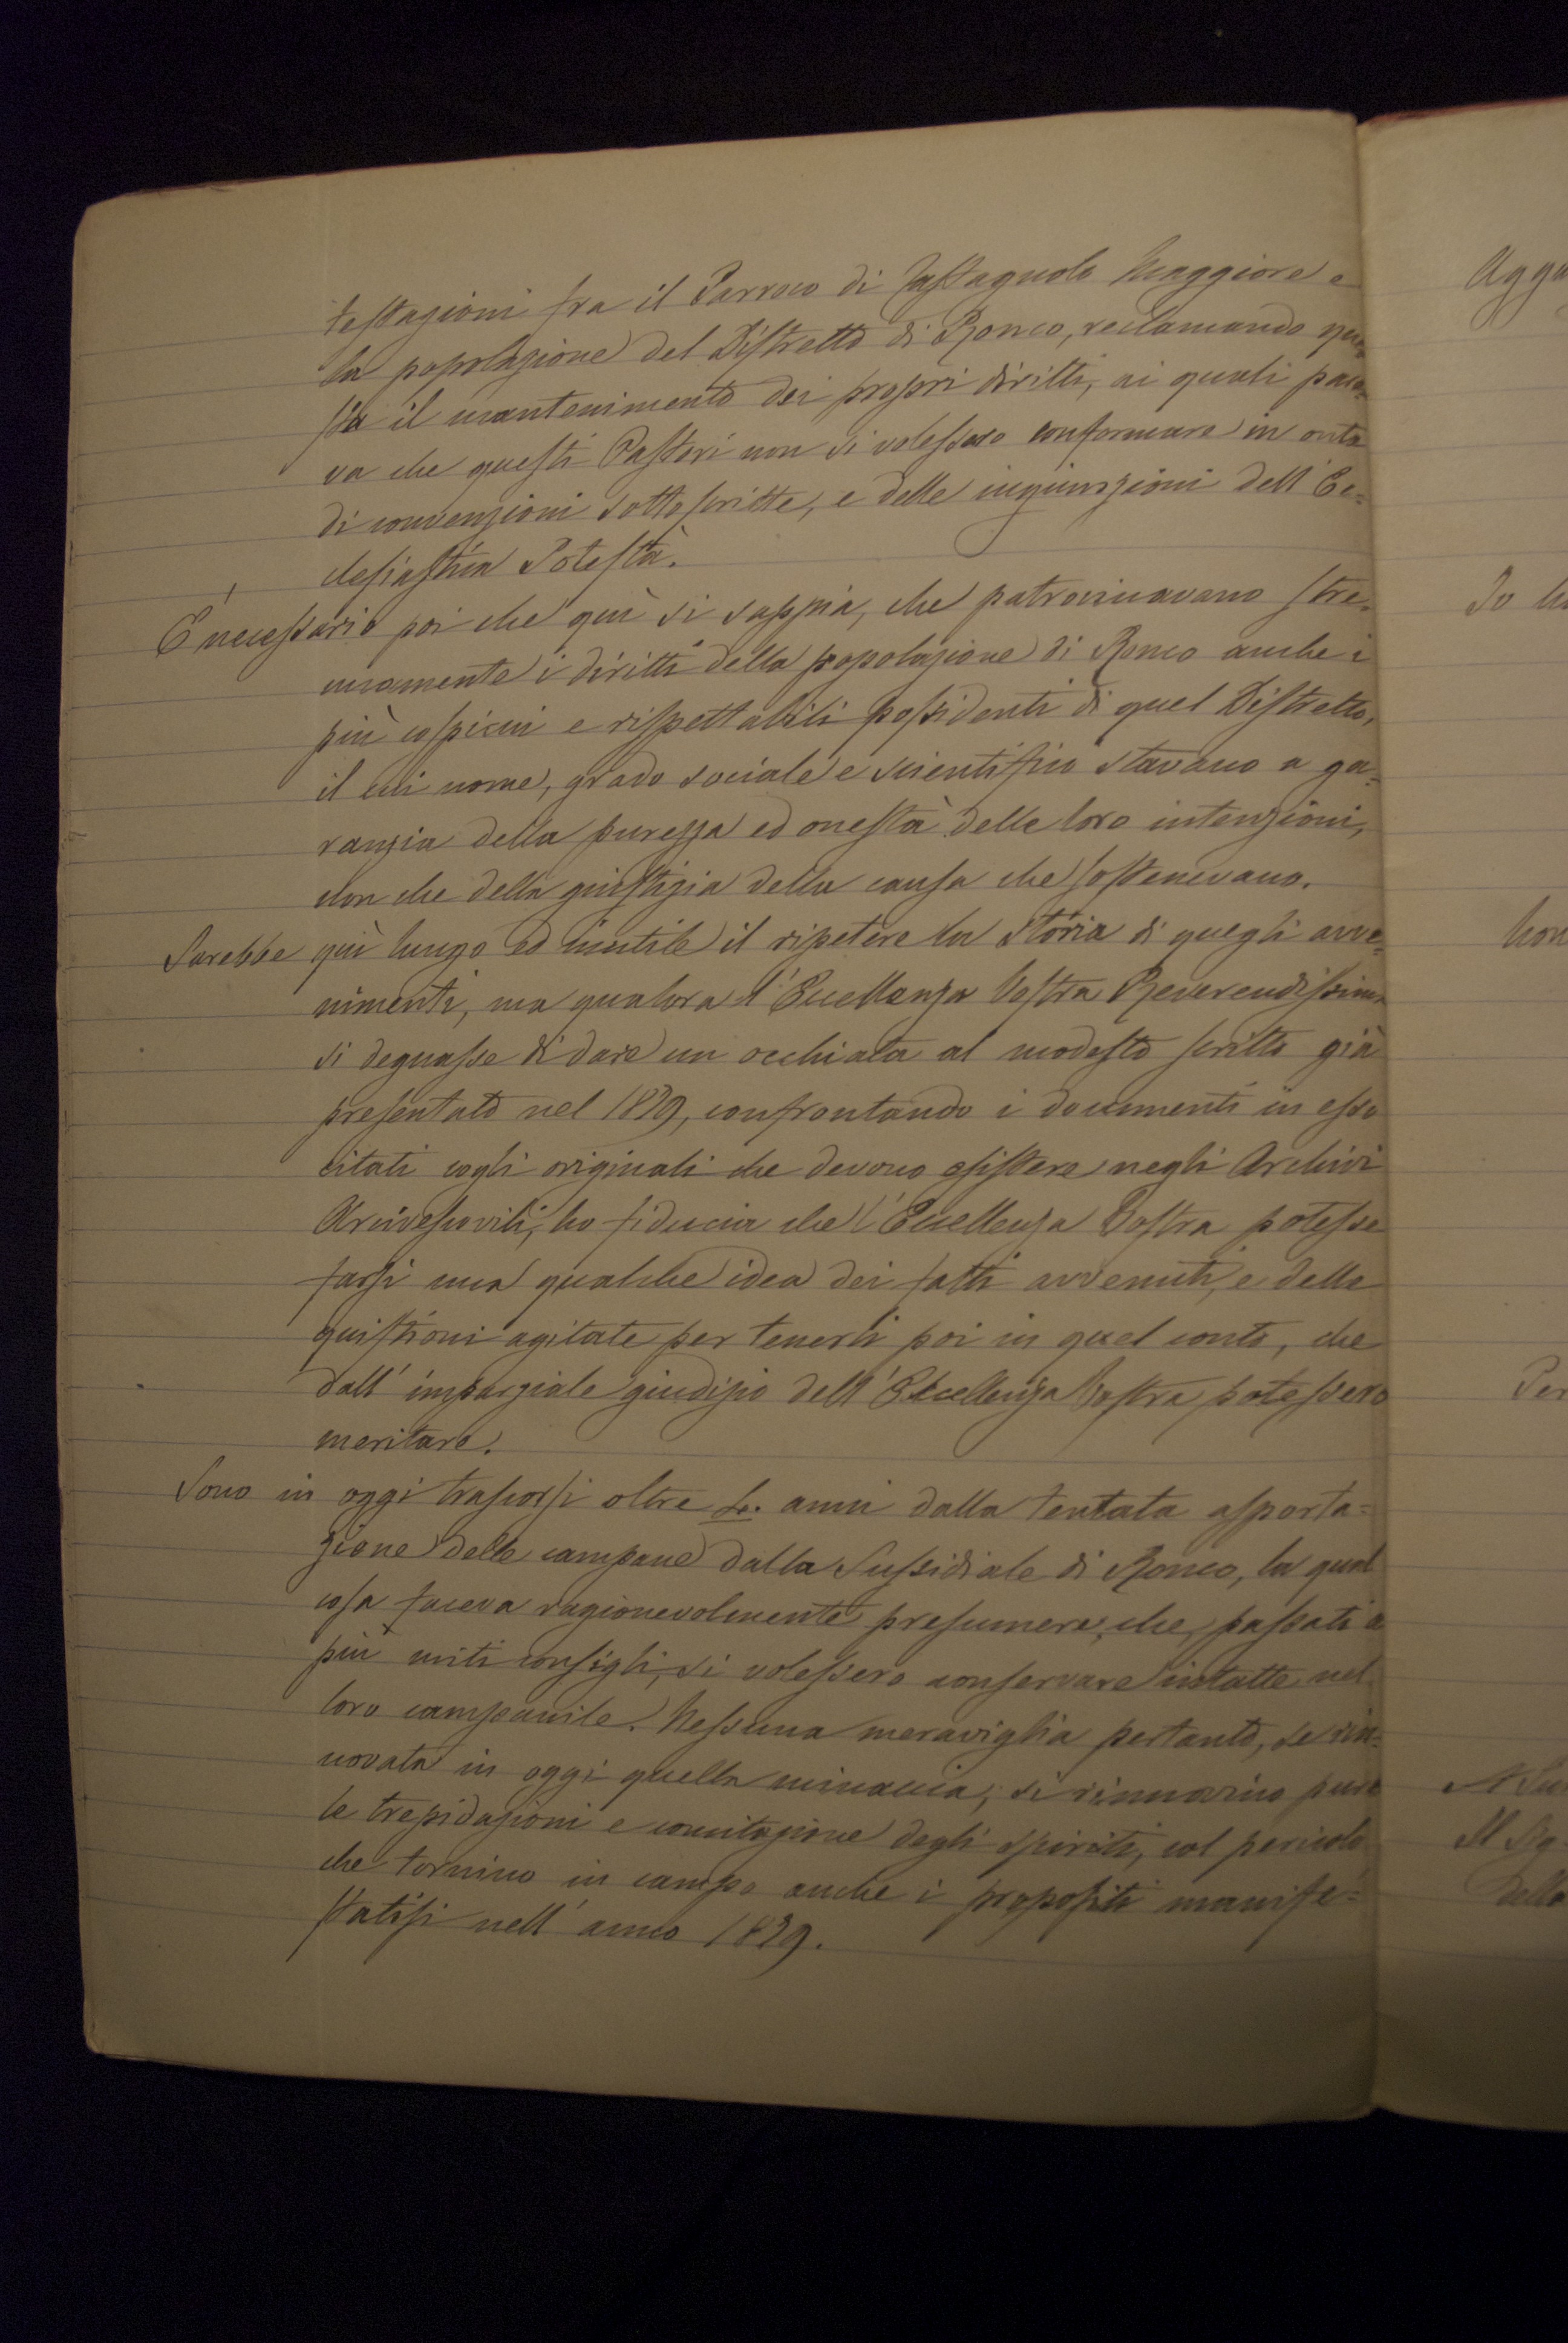 testazioni fra il Parroco di Castagnolo Maggiore e
la popolazione del Distretto di Ronco, reclamando que=
sta il mantenimento dei propri diritti, ai quali pare=
va che questi Pastori non si volessero conformare in onta
di convenzioni sottoscritte, e delle ingiunzioni dell' Ec=
clesiastica Potestà.
È necessario poi che quì si sappia, che patrocinavano stre=
nuamente i diritti della popolazione di Ronco anche i
più cospicui e rispettabili possidenti di quel Distretto,
il cui nome, grado sociale e scientifico stavano a ga=
ranzia della purezza ed onestà delle loro intenzioni,
non che della giustizia della causa che sostenevano.
Sarebbe quì lungo ed inutile il ripetere la storia di quegli avve=
nimenti, ma qualora l'Eccellenza Vostra Reverendissima
si degnasse di dare un occhiata al modesto scritto già
presentato nel 1879, confrontando i documenti in esso
citati cogli originali che devono esistere negli Archivi
Arcivescovili, ho fiducia che l'Eccellenza Vostra potesse
farsi una qualche idea dei fatti avvenuti, e delle
quistioni agitate per tenerli poi in quel conto, che
dall' imparziale giudizio dell' Eccellenza Vostra potessero
meritare.
Sono in oggi trascorsi oltre anni dalla tentata asporta=
zione delle campane dalla Sussidiale di Ronco, la qual
cosa faceva ragionevolmente presumere, che, passati a
più miti consigli, si volessero conservare intatte nel
loro campanile. Nessuna meraviglia pertanto, se rin=
novata in oggi quella minaccia, si rinnovino pure
le trepidazioni e concitazione degli spiriti, col pericolo
che tornino in campo anche i propositi manife=
statisi nell' anno 1879.